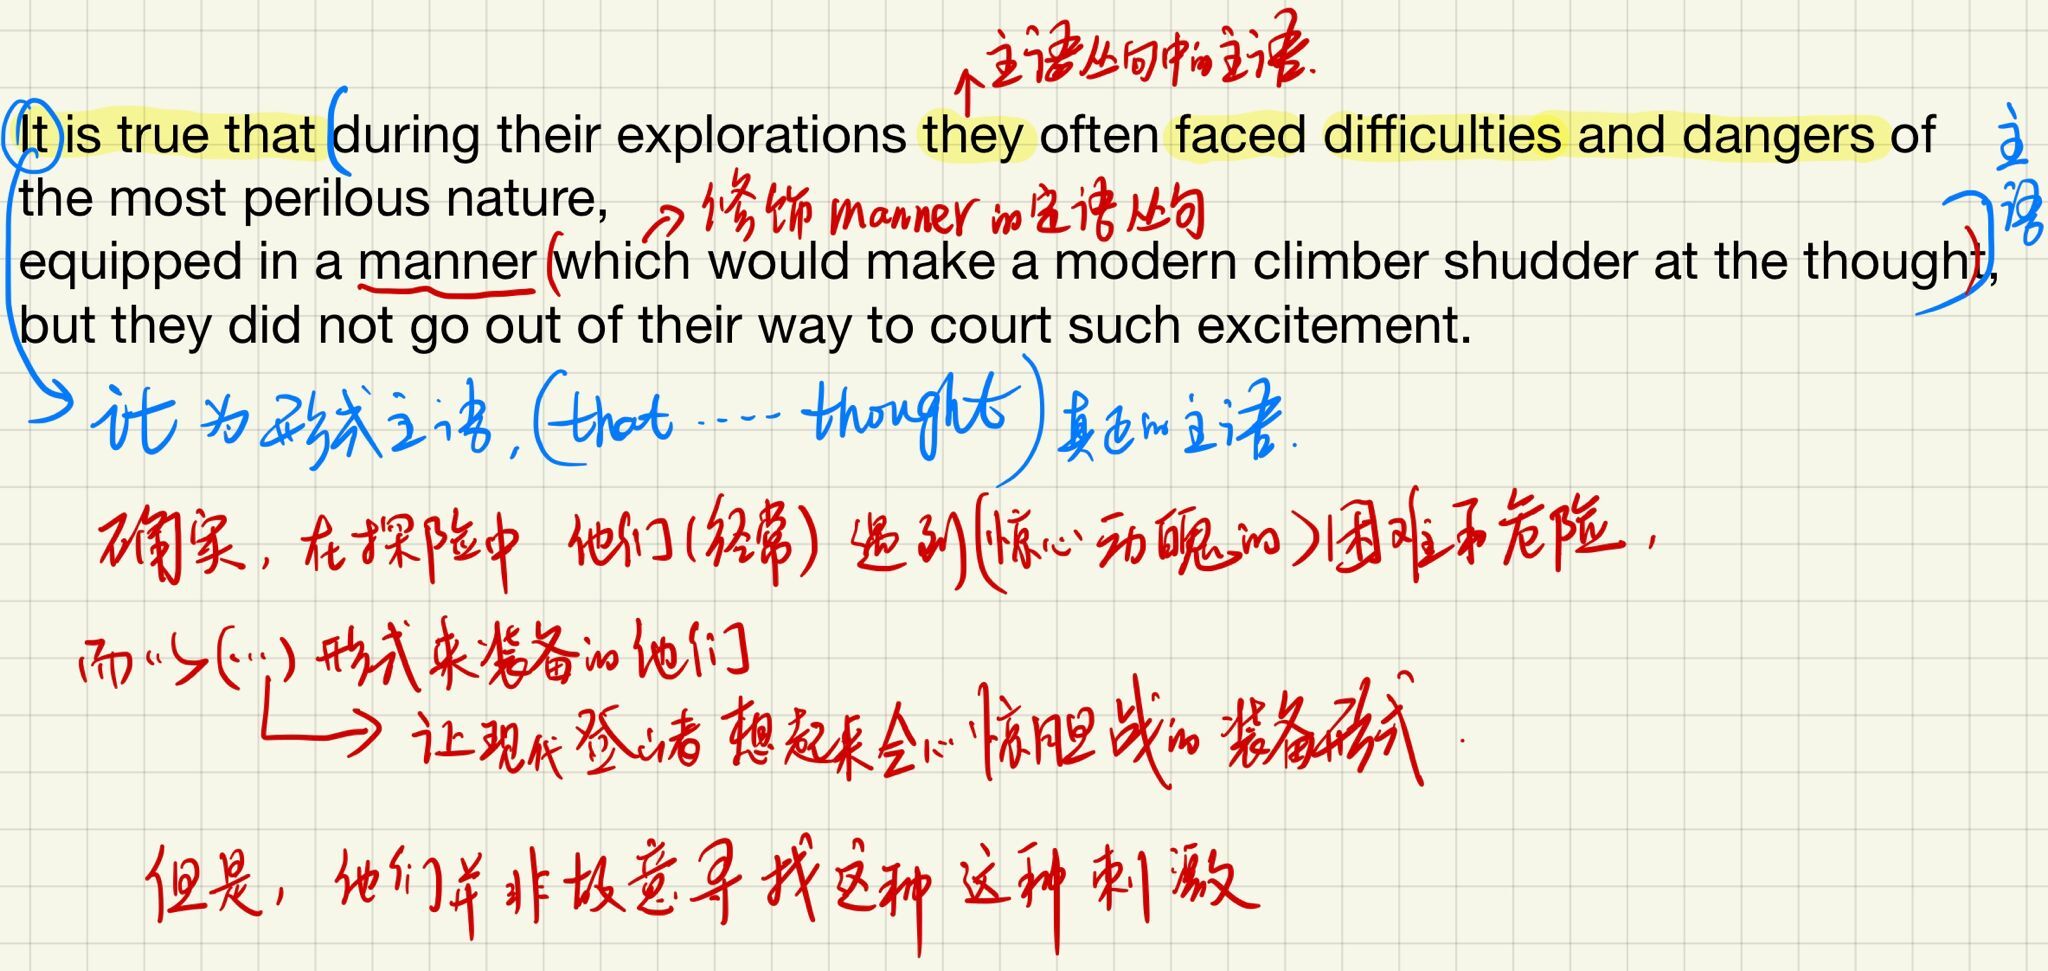 主语从句中的主语.
It is true that (during their explorations they often faced difficulties and dangers of
主语
the most perilous nature,
修饰 manner 的定语从句
equipped in a manner (which would make a modern climber shudder at the thought),
but they did not go out of their way to court such excitement.
it 为形式主语, (that ---- thought) 真正的主语.
确实, 在探险中 他们(经常) 遇到(惊心动魄的)困难和危险,
而以(…)形式来装备的他们
让现代登山者想起来会心惊胆战的装备形式.
但是, 他们并非故意寻找这种这种刺激